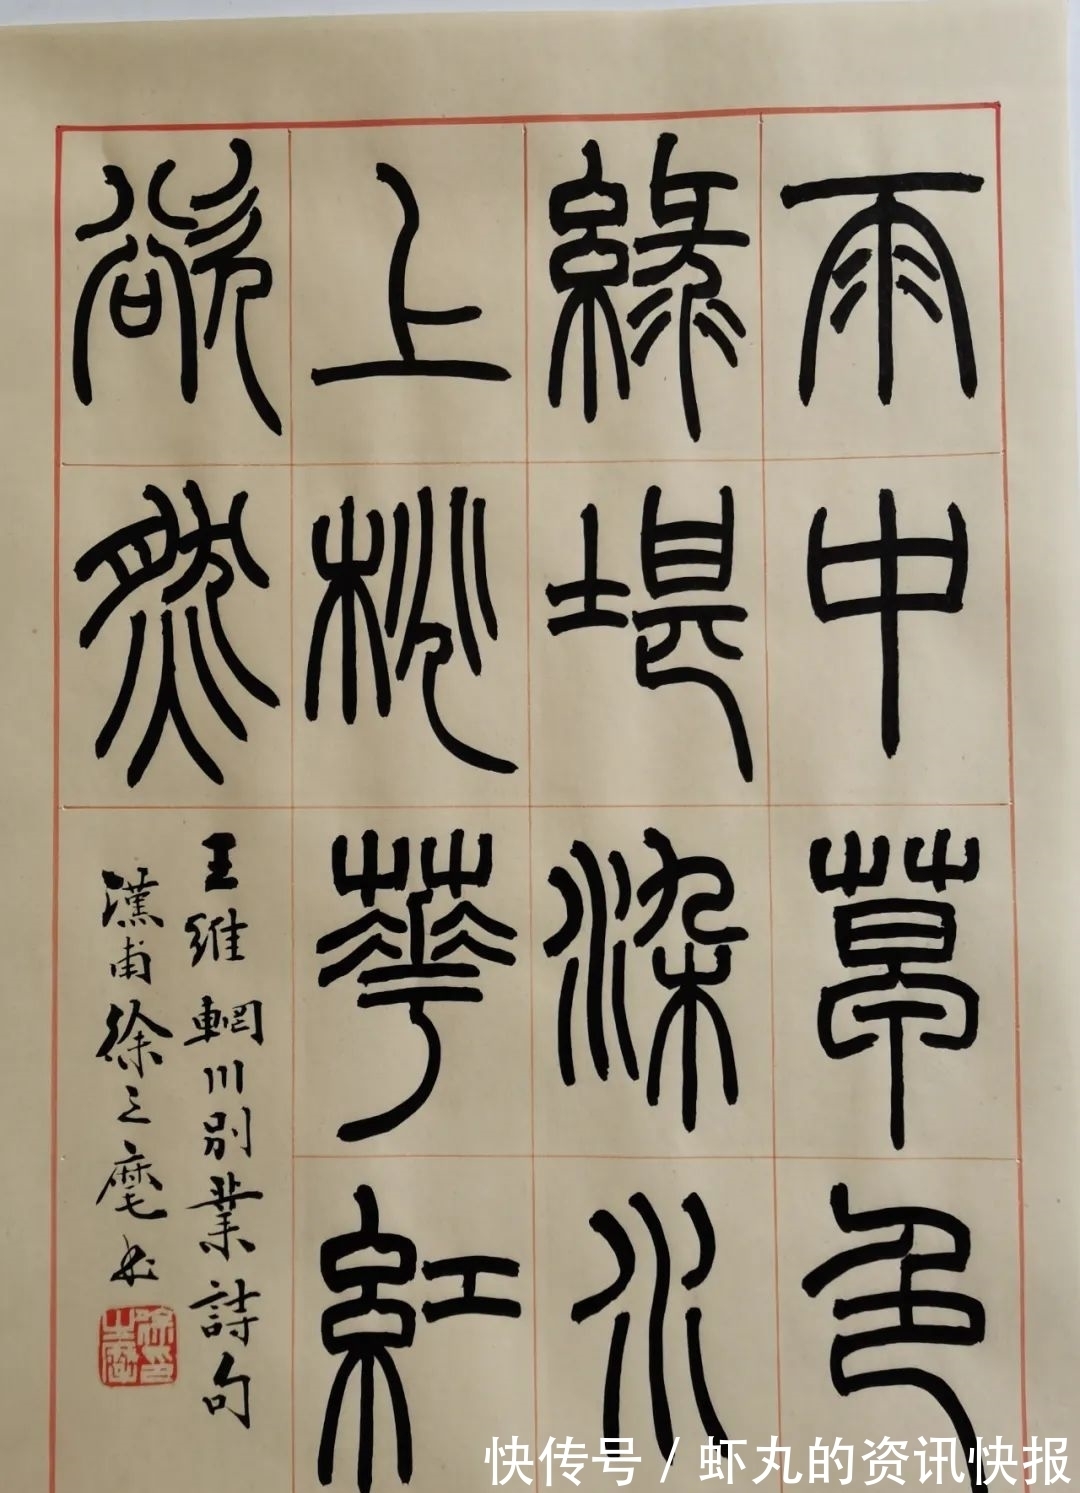 雨中草色
綠堪染水
上桃華紅
欲然
王維輞川別業詩句
漢甫徐之麾书
快传号/虾丸的资讯快报